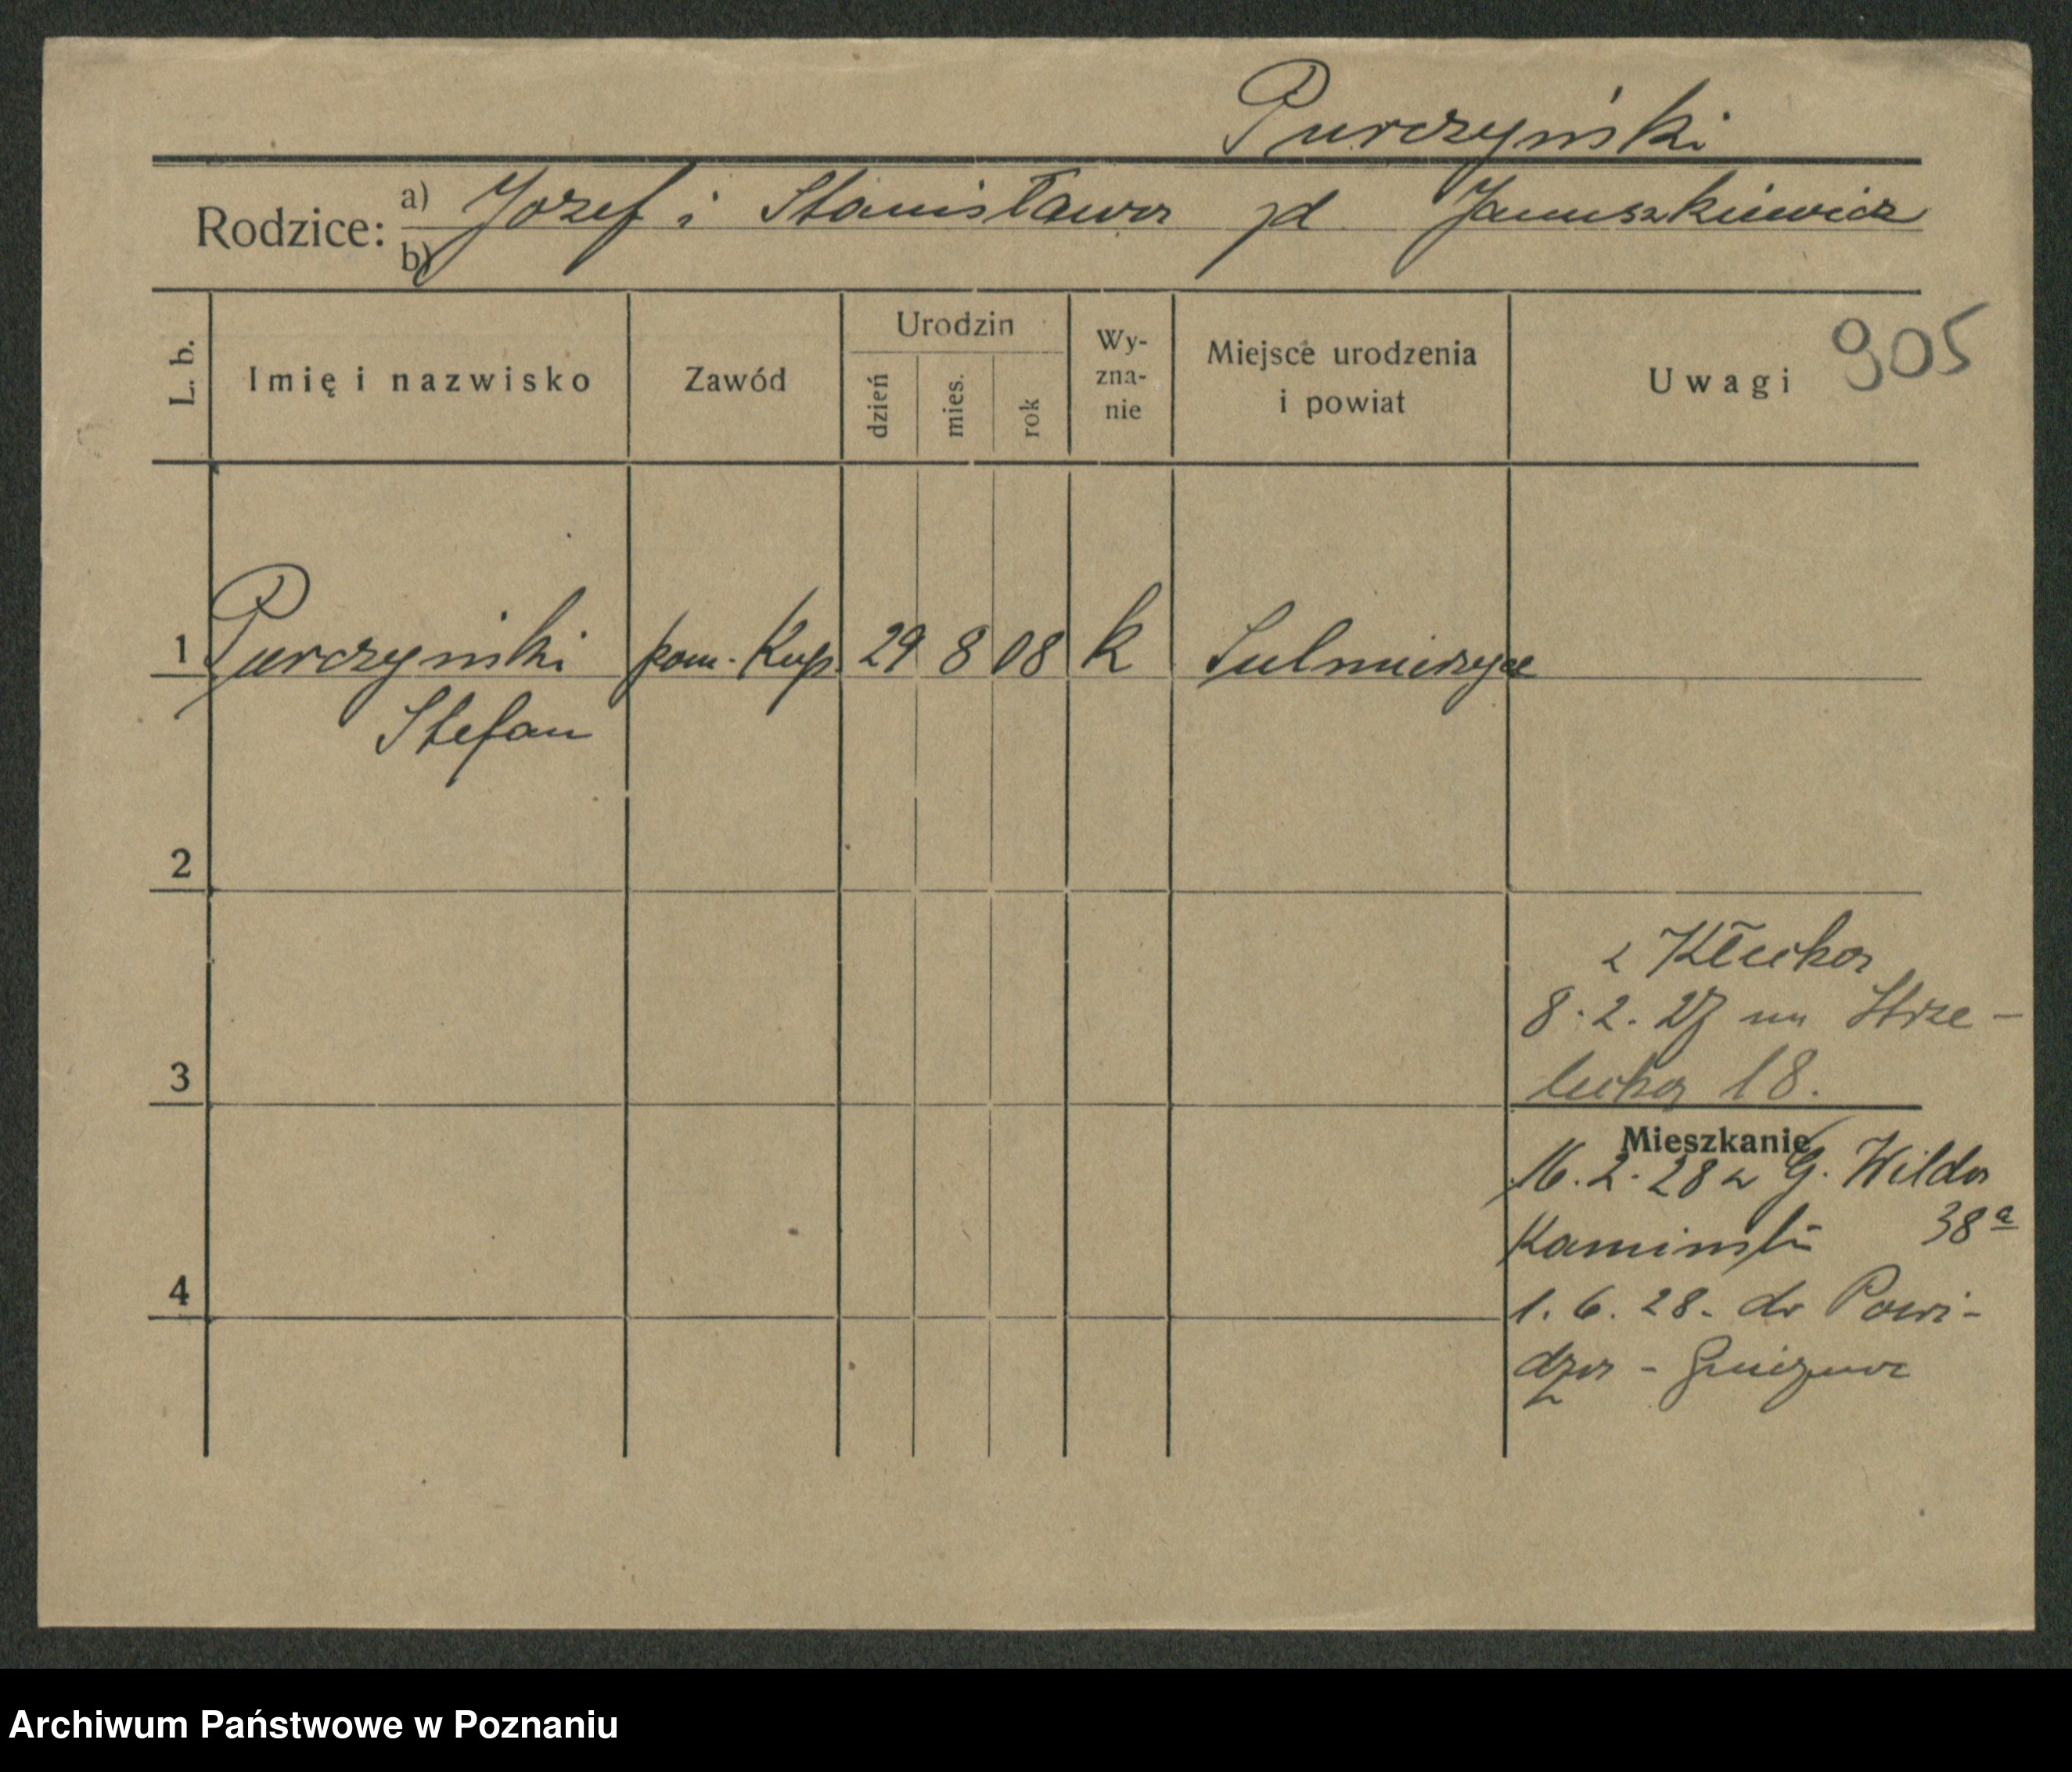 Purczyński
Rodzice: a) Jozef i Stanisława zd Januszkiewicz
b)
L. b. Imię i nazwisko Zawód Urodzin dzień mies. rok Wy-zna-nie Miejsce urodzenia i powiat Uwagi 905
1 Purczyński pom. Kup. 29 8 08 k Sulmierzyce
Stefan
2
z Kłecka
8.2.27 na Strze-
lecka 18.
3
Mieszkanie
16.2.28 G. Wilda
38a
4
1.6.28. do Powi-
dza - Gniezno
Archiwum Państwowe w Poznaniu